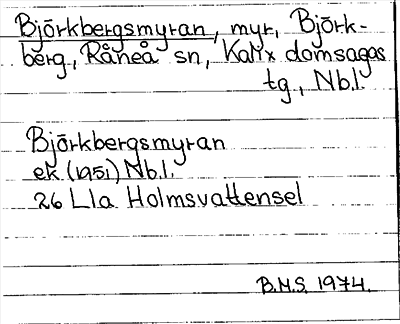 Björkbergsmyran, myr, Björk-
berg, Råneå sn, Kalix domsagas
tg., Nbl.
Björkbergsmyran
ek (1951) Nbl.
26 Lla Holmsvattensel
B.M.S. 1974.